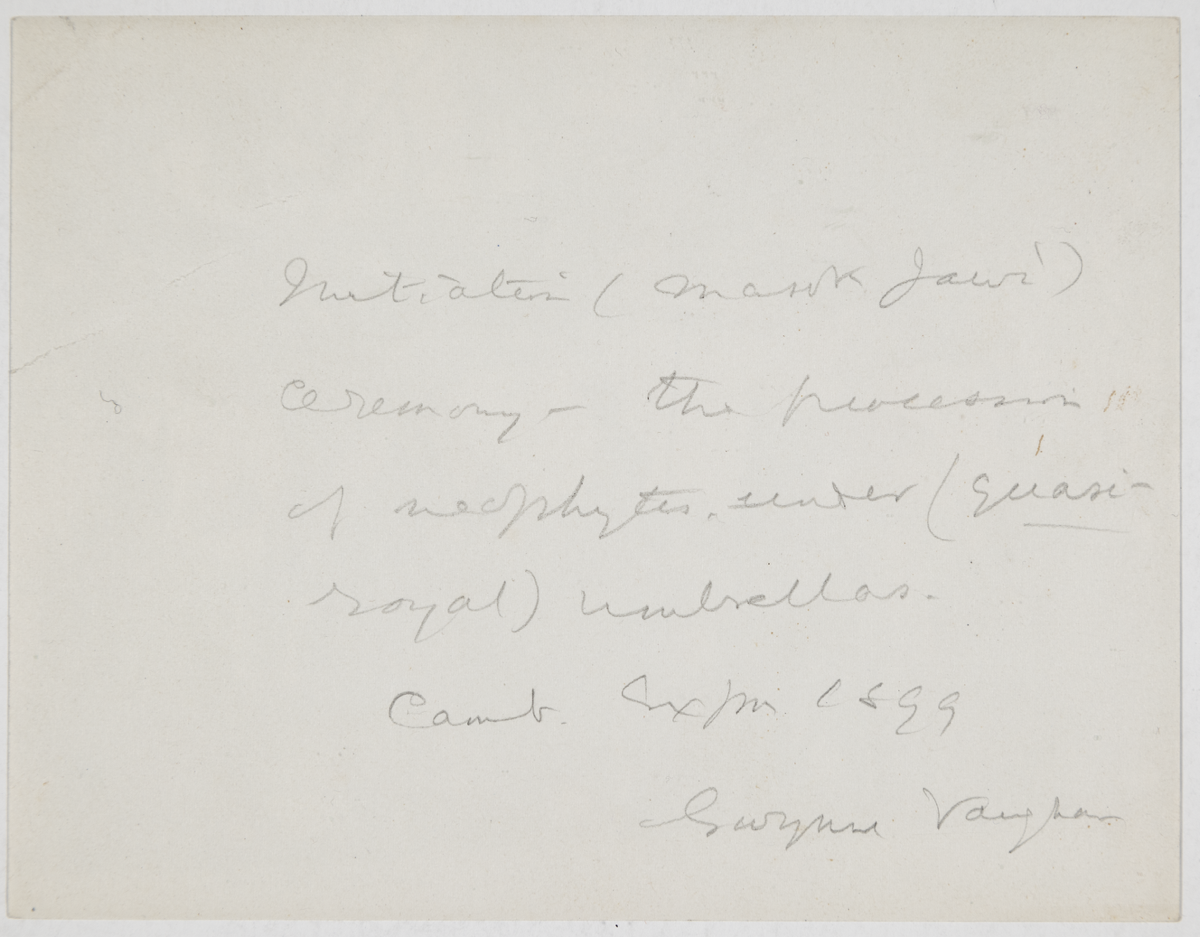 Initiation (Masok Jawi)
ceremony - the procession
of neophytes. under (quasi-
royal) umbrellas.
Camb. Expn 1899
Gwynne Vaughan